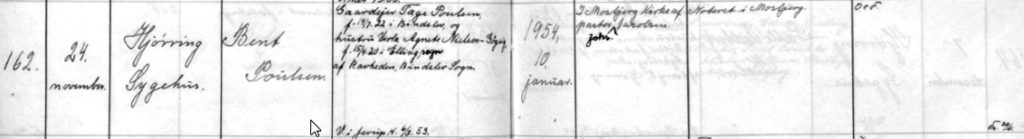 162.
24.
november.
Hjörring
Sygehus.
Bent
Poulsen.
Gaardejer Tage Poulsen,
f. 19/7. 22 i Bindslev, og
hustru Viola Agnete Nielsen
f. 15/4. 20 i Elling sogn
af Kavheden, Bindslev Sogn.
1954,
10.
januar.
I Mosbjerg Kirke af
pastor Jacobsen.
Noteret i Mosbjerg.